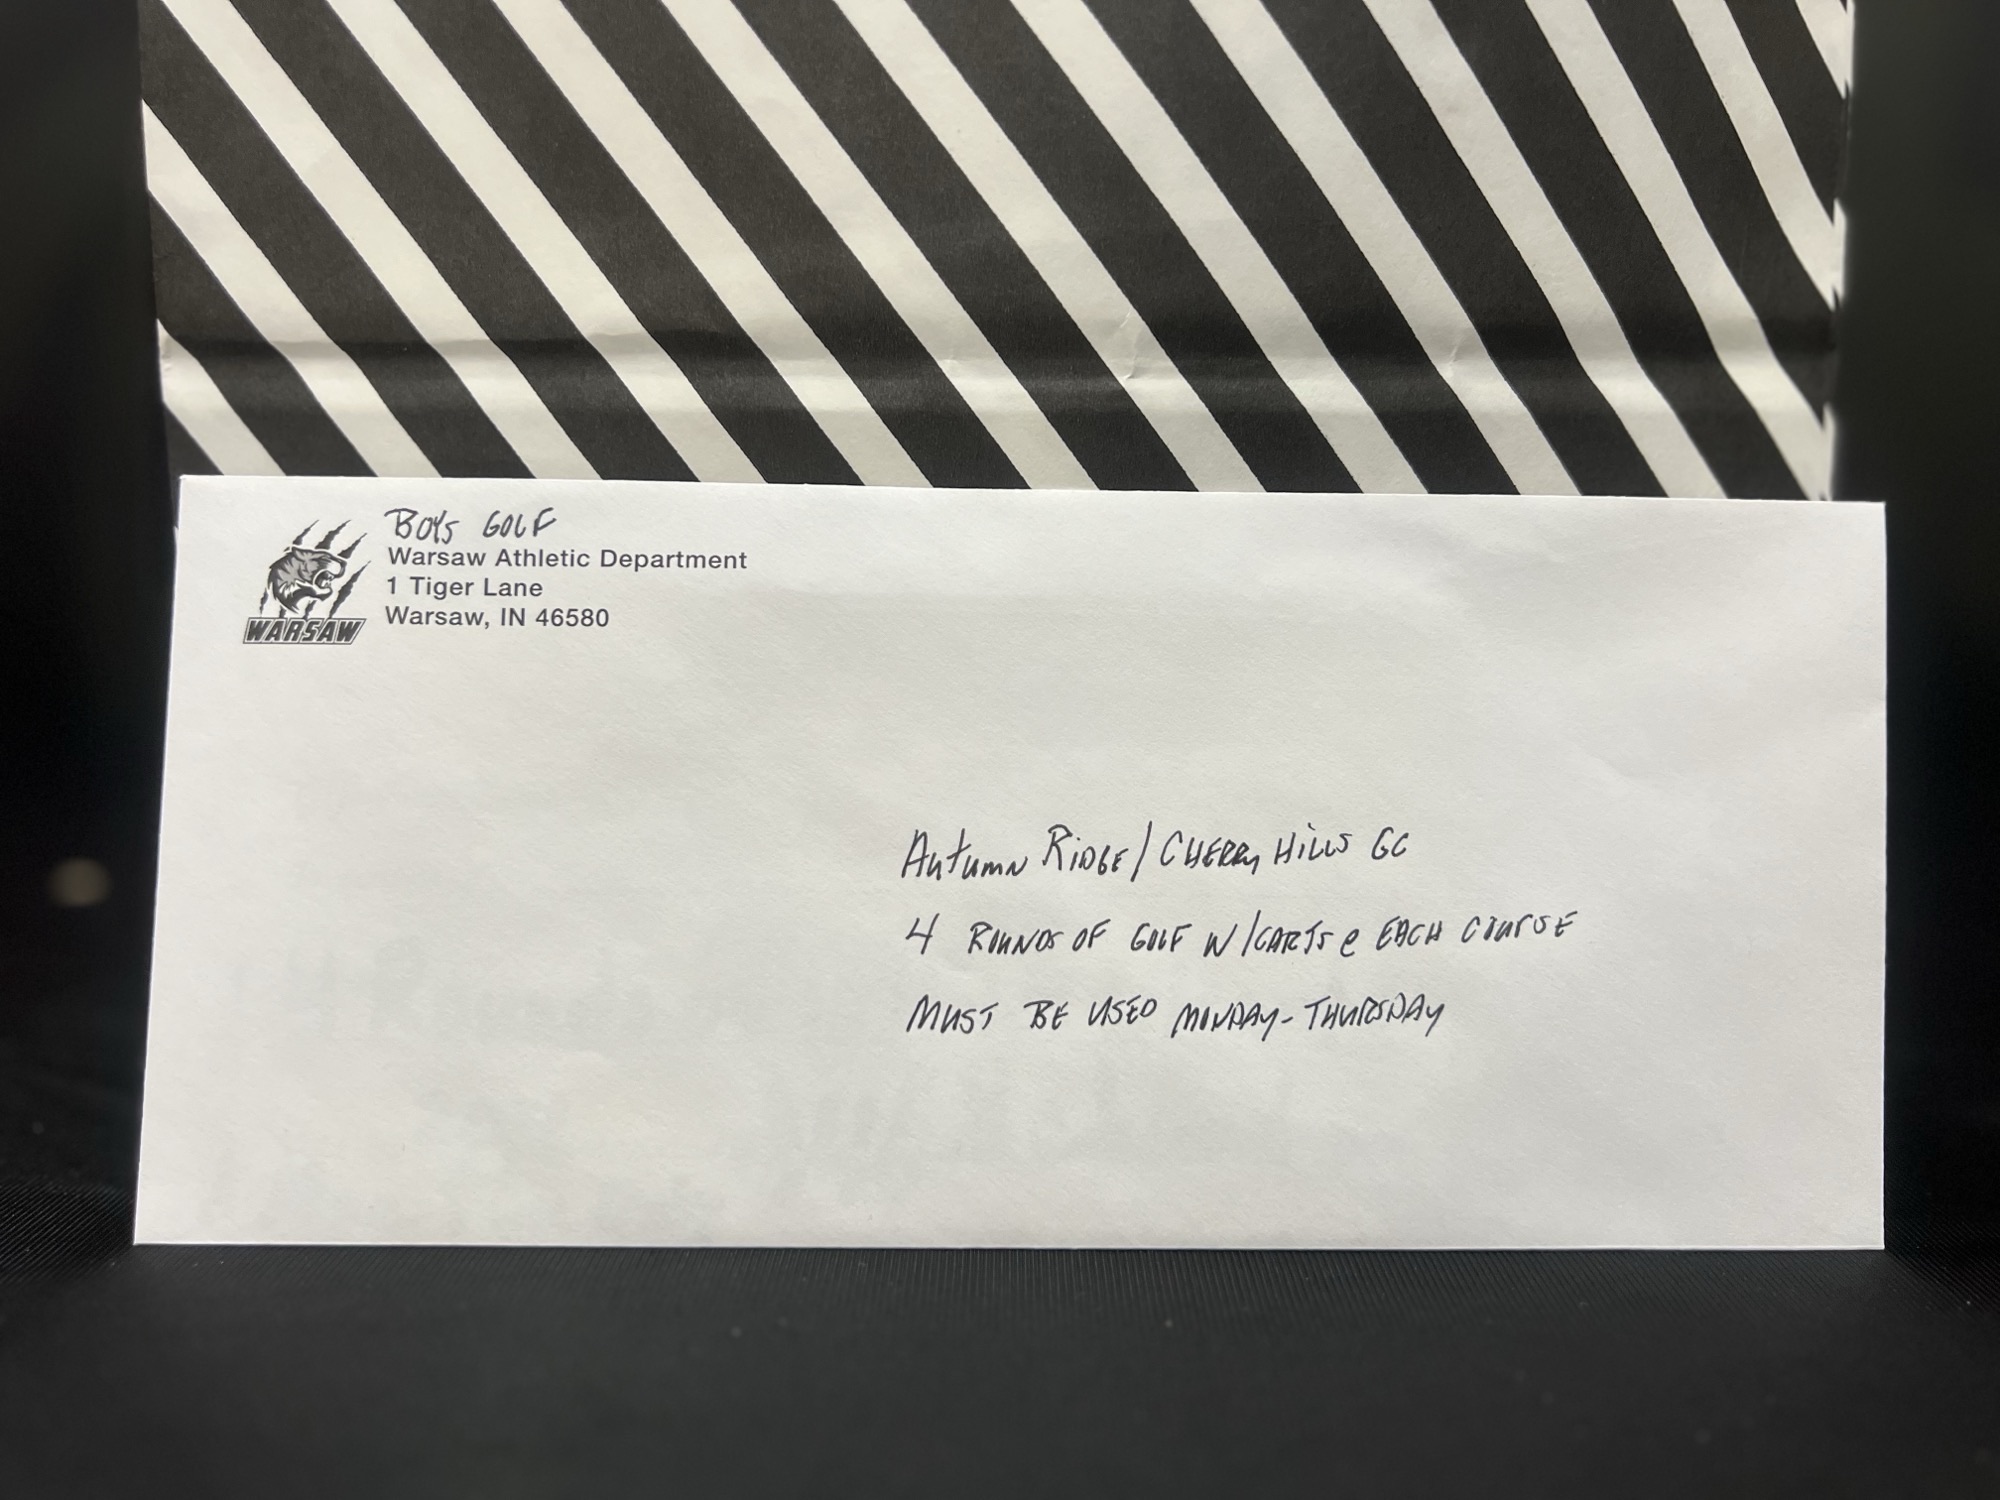 BOYS GOLF
Warsaw Athletic Department
1 Tiger Lane
Warsaw, IN 46580
WARSAW
Autumn Ridge / CHERRY HILLS GC
4 ROUNDS OF GOLF W/CARTS @ EACH COURSE
MUST BE USED MONDAY - THURSDAY